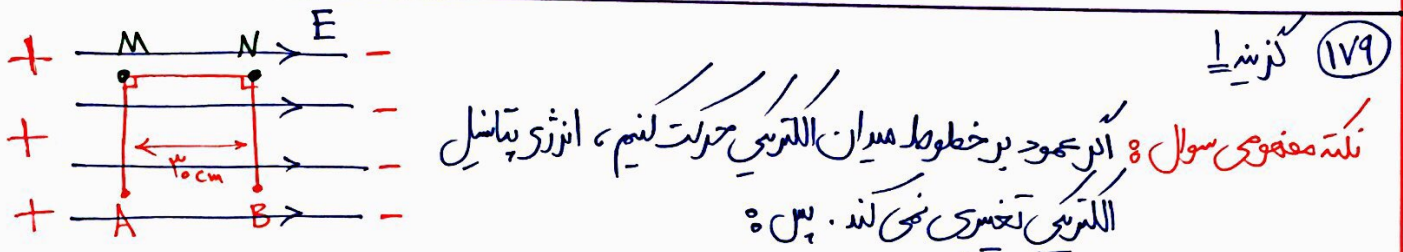 ۱۷۹ گزینه ۱
نکته مفهومی سوال : اگر عمود بر خطوط میدان الکتریکی حرکت کنیم ، انرژی پتانسیل
الکتریکی تغییری نمی کند . پس :
+ M N E -
-
+ -
۳۰cm
+ A B -